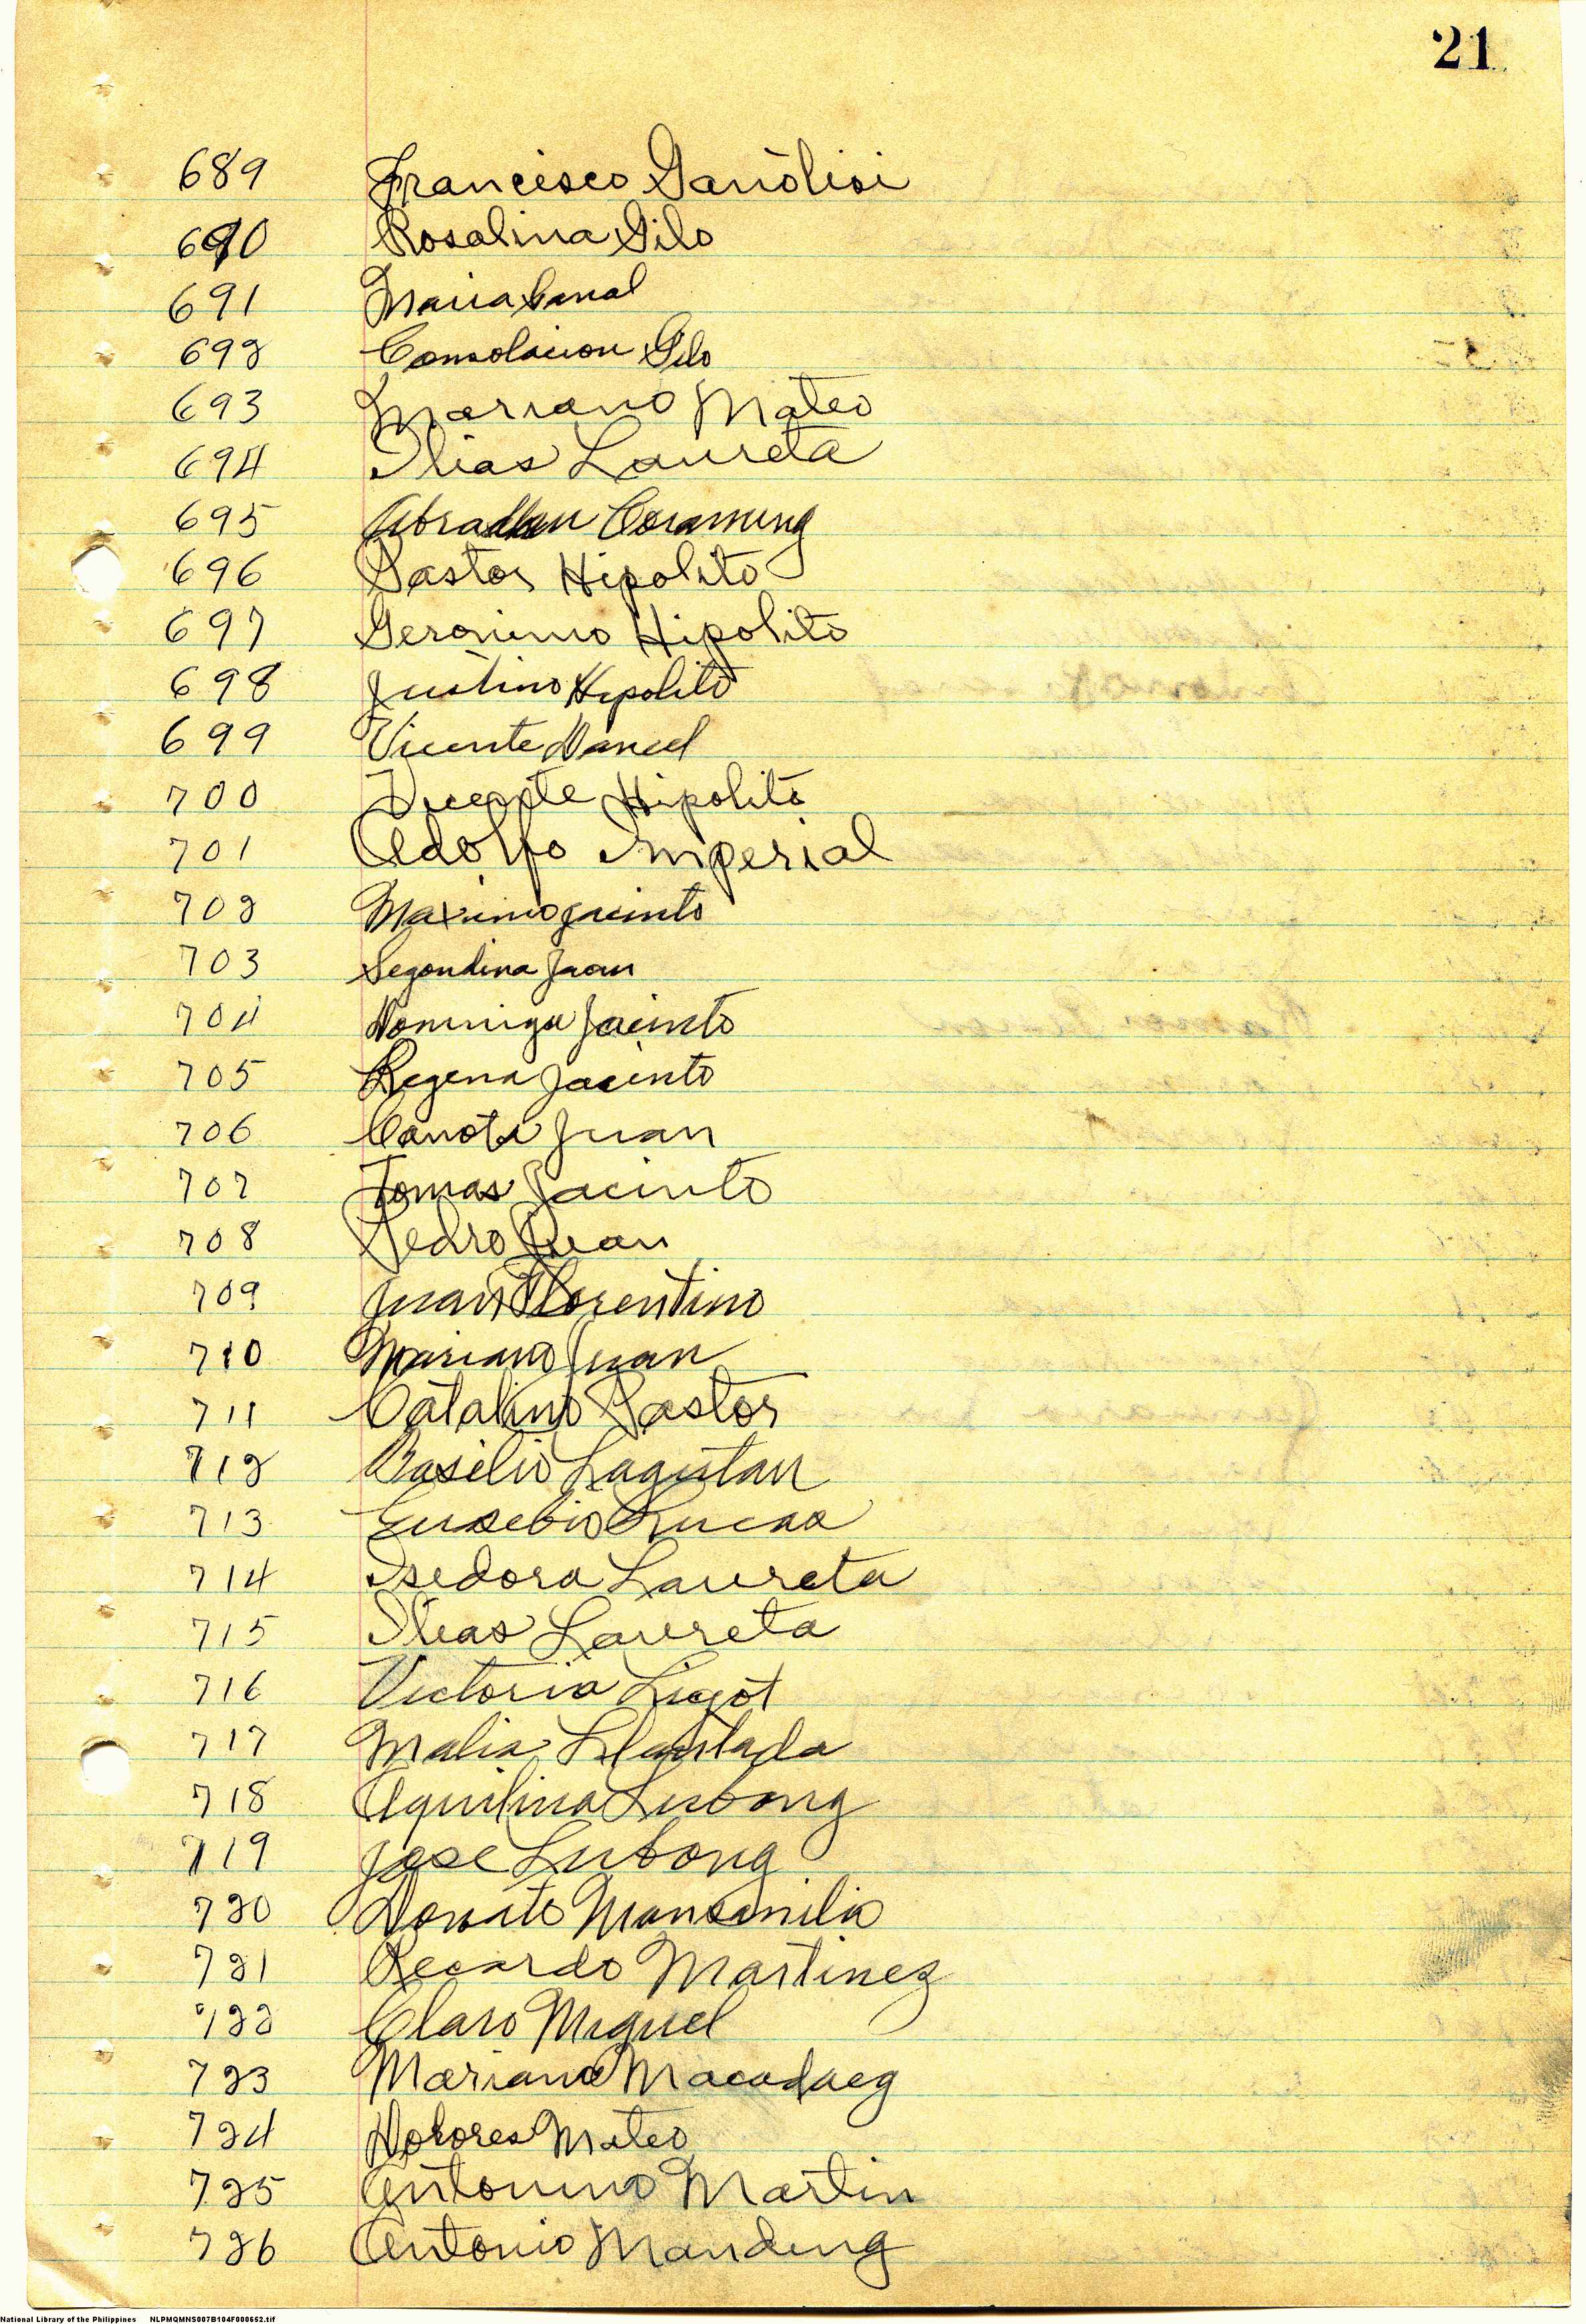 21
689 Francisco
690 Rosalina Gilo
691 Maria
692 Consolacion Gilo
693 Mariano Mateo
694 Ilias Laureta
695
696 Pastor Hipolito
697 Geronimo Hipolito
698 Justino Hipolito
699 Vicente
700 Vicente Hipolito
701 Adolfo Imperial
702 Maximo Jacinto
703 Segondina Juan
704 Dominga Jacinto
705 Regena Jacinto
706 Canota Juan
707 Tomas Jacinto
708 Pedro Juan
709 Juan Florentino
710 Mariano Juan
711 Catalino Pastor
712 Basilio Lagutan
713 Eusebio Lucas
714 Isedora Laureta
715 Ilias Laureta
716 Victoria Ligot
717 Malia
718 Aquilina Lubong
719 Jose Lubong
720 Donato Mansanilia
721 Recardo Martinez
722 Claro Miguel
723 Mariano Macadaeg
724 Dolores Mateo
725 Antonino Martin
726 Antonio Mandeng
National Library of the Philippines NLPMQMNS007B104F000652.tif